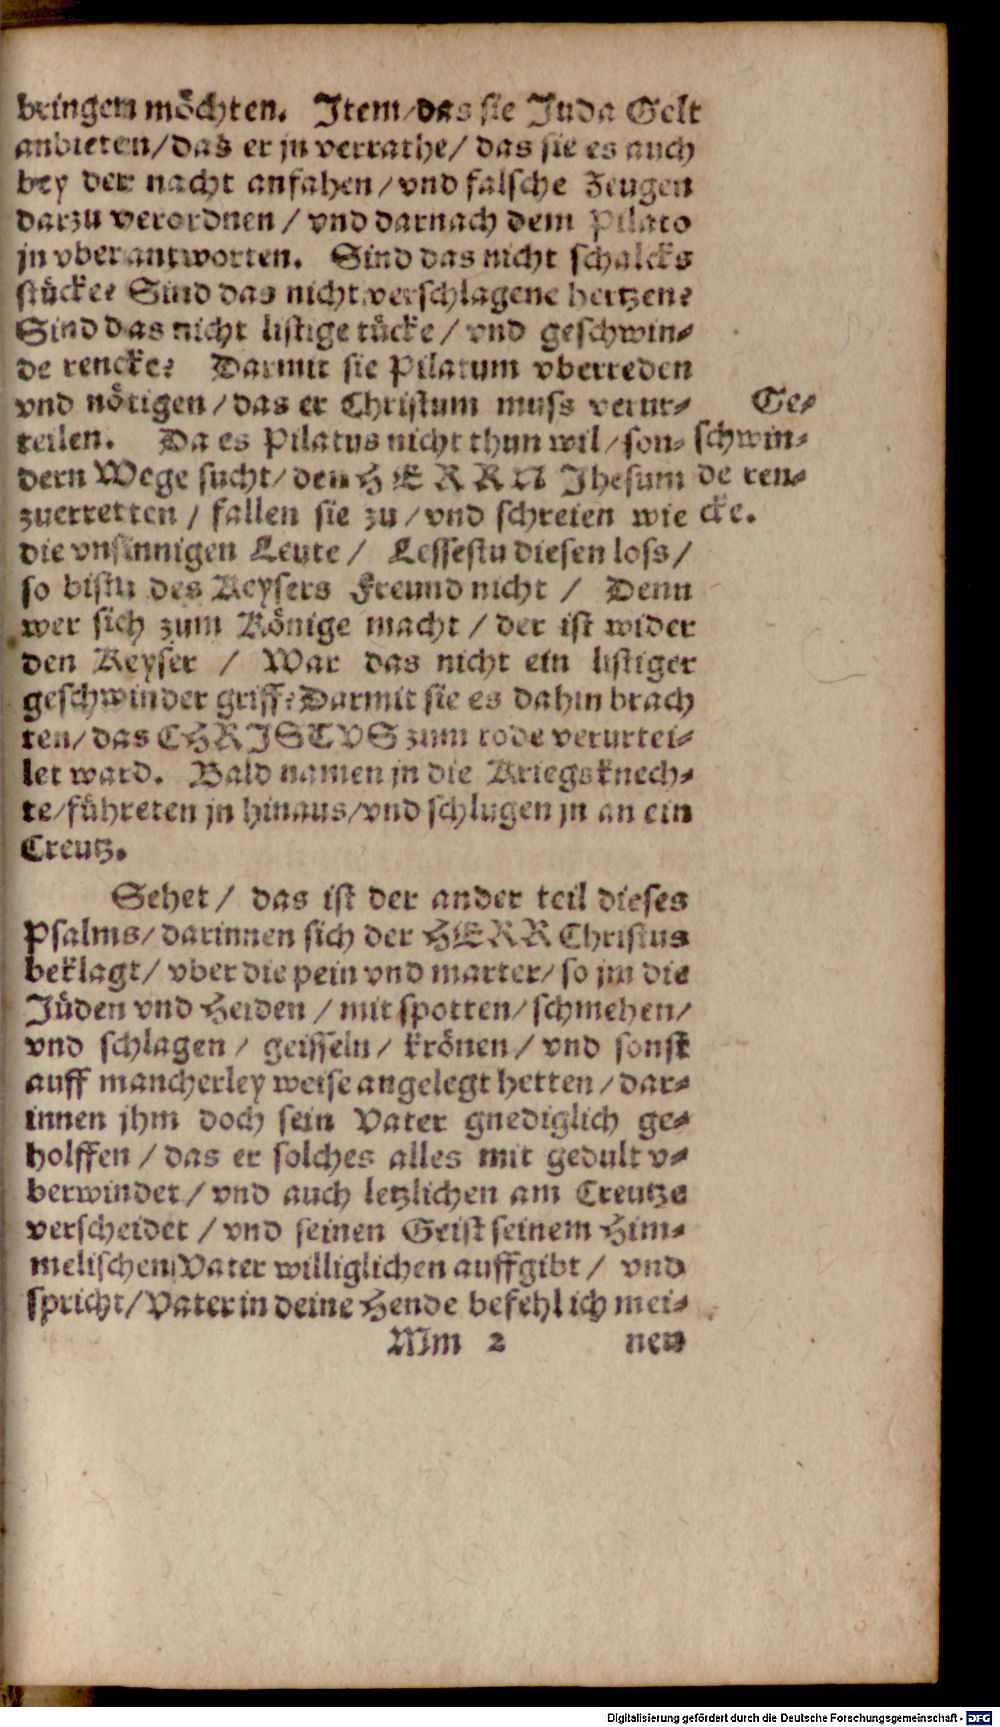 bringen möchten. Item/das sie Juda Gelt
anbieten/das er jn verrathe/ das sie es auch
bey der nacht anfahen/vnd falsche Zeugen
darzu verordnen / vnd darnach dem Pilato
jn vberantworten. Sind das nicht schalcks
stücke? Sind das nicht verschlagene hertzen?
Sind das nicht listige tücke / vnd geschwin-
de rencke? Darmit sie Pilatum vberreden
vnd nötigen/das er Christum muss verur-
teilen. Da es Pilatus nicht thun wil/son-
dern Wege sucht/den HERRN Jhesum
zuerretten / fallen sie zu/vnd schreien wie
die vnsinnigen Leute / Lessestu diesen loss/
so bistu des Keysers Freund nicht / Denn
wer sich zum Könige macht / der ist wider
den Keyser / War das nicht ein listiger
geschwinder griff? Darmit sie es dahin brach
ten/das CHRISTVS zum tode verurtei-
let ward. Bald namen jn die Kriegsknech-
te/führeten jn hinaus/vnd schlugen jn an ein
Creutz.
Ge-
schwin-
de ren-
cke.
Sehet / das ist der ander teil dieses
Psalms/darinnen sich der HERR Christus
beklagt/vber die pein vnd marter/so jm die
Jüden vnd Heiden / mit spotten/schmehen/
vnd schlagen / geisseln / krönen / vnd sonst
auff mancherley weise angelegt hetten/dar-
innen jhm doch sein Vater gnediglich ge-
holffen / das er solches alles mit gedult v-
berwindet / vnd auch letzlichen am Creutze
verscheidet / vnd seinen Geist seinem Him-
melischen Vater williglichen auffgibt / vnd
spricht/Vater in deine Hende befehl ich mei-
Mm 2 nen
Digitalisierung gefördert durch die Deutsche Forschungsgemeinschaft - DFG